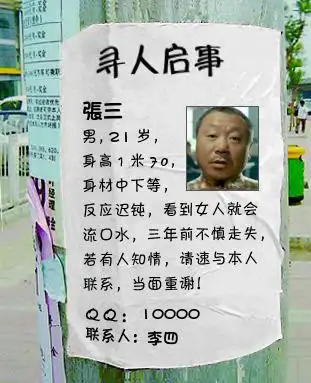 寻人启事
張三
男,21岁,
身高1米70,
身材中下等,
反应迟钝，看到女人就会
流口水，三年前不慎走失,
若有人知情，请速与本人
联系，当面重谢!
QQ：10000
联系人：李四